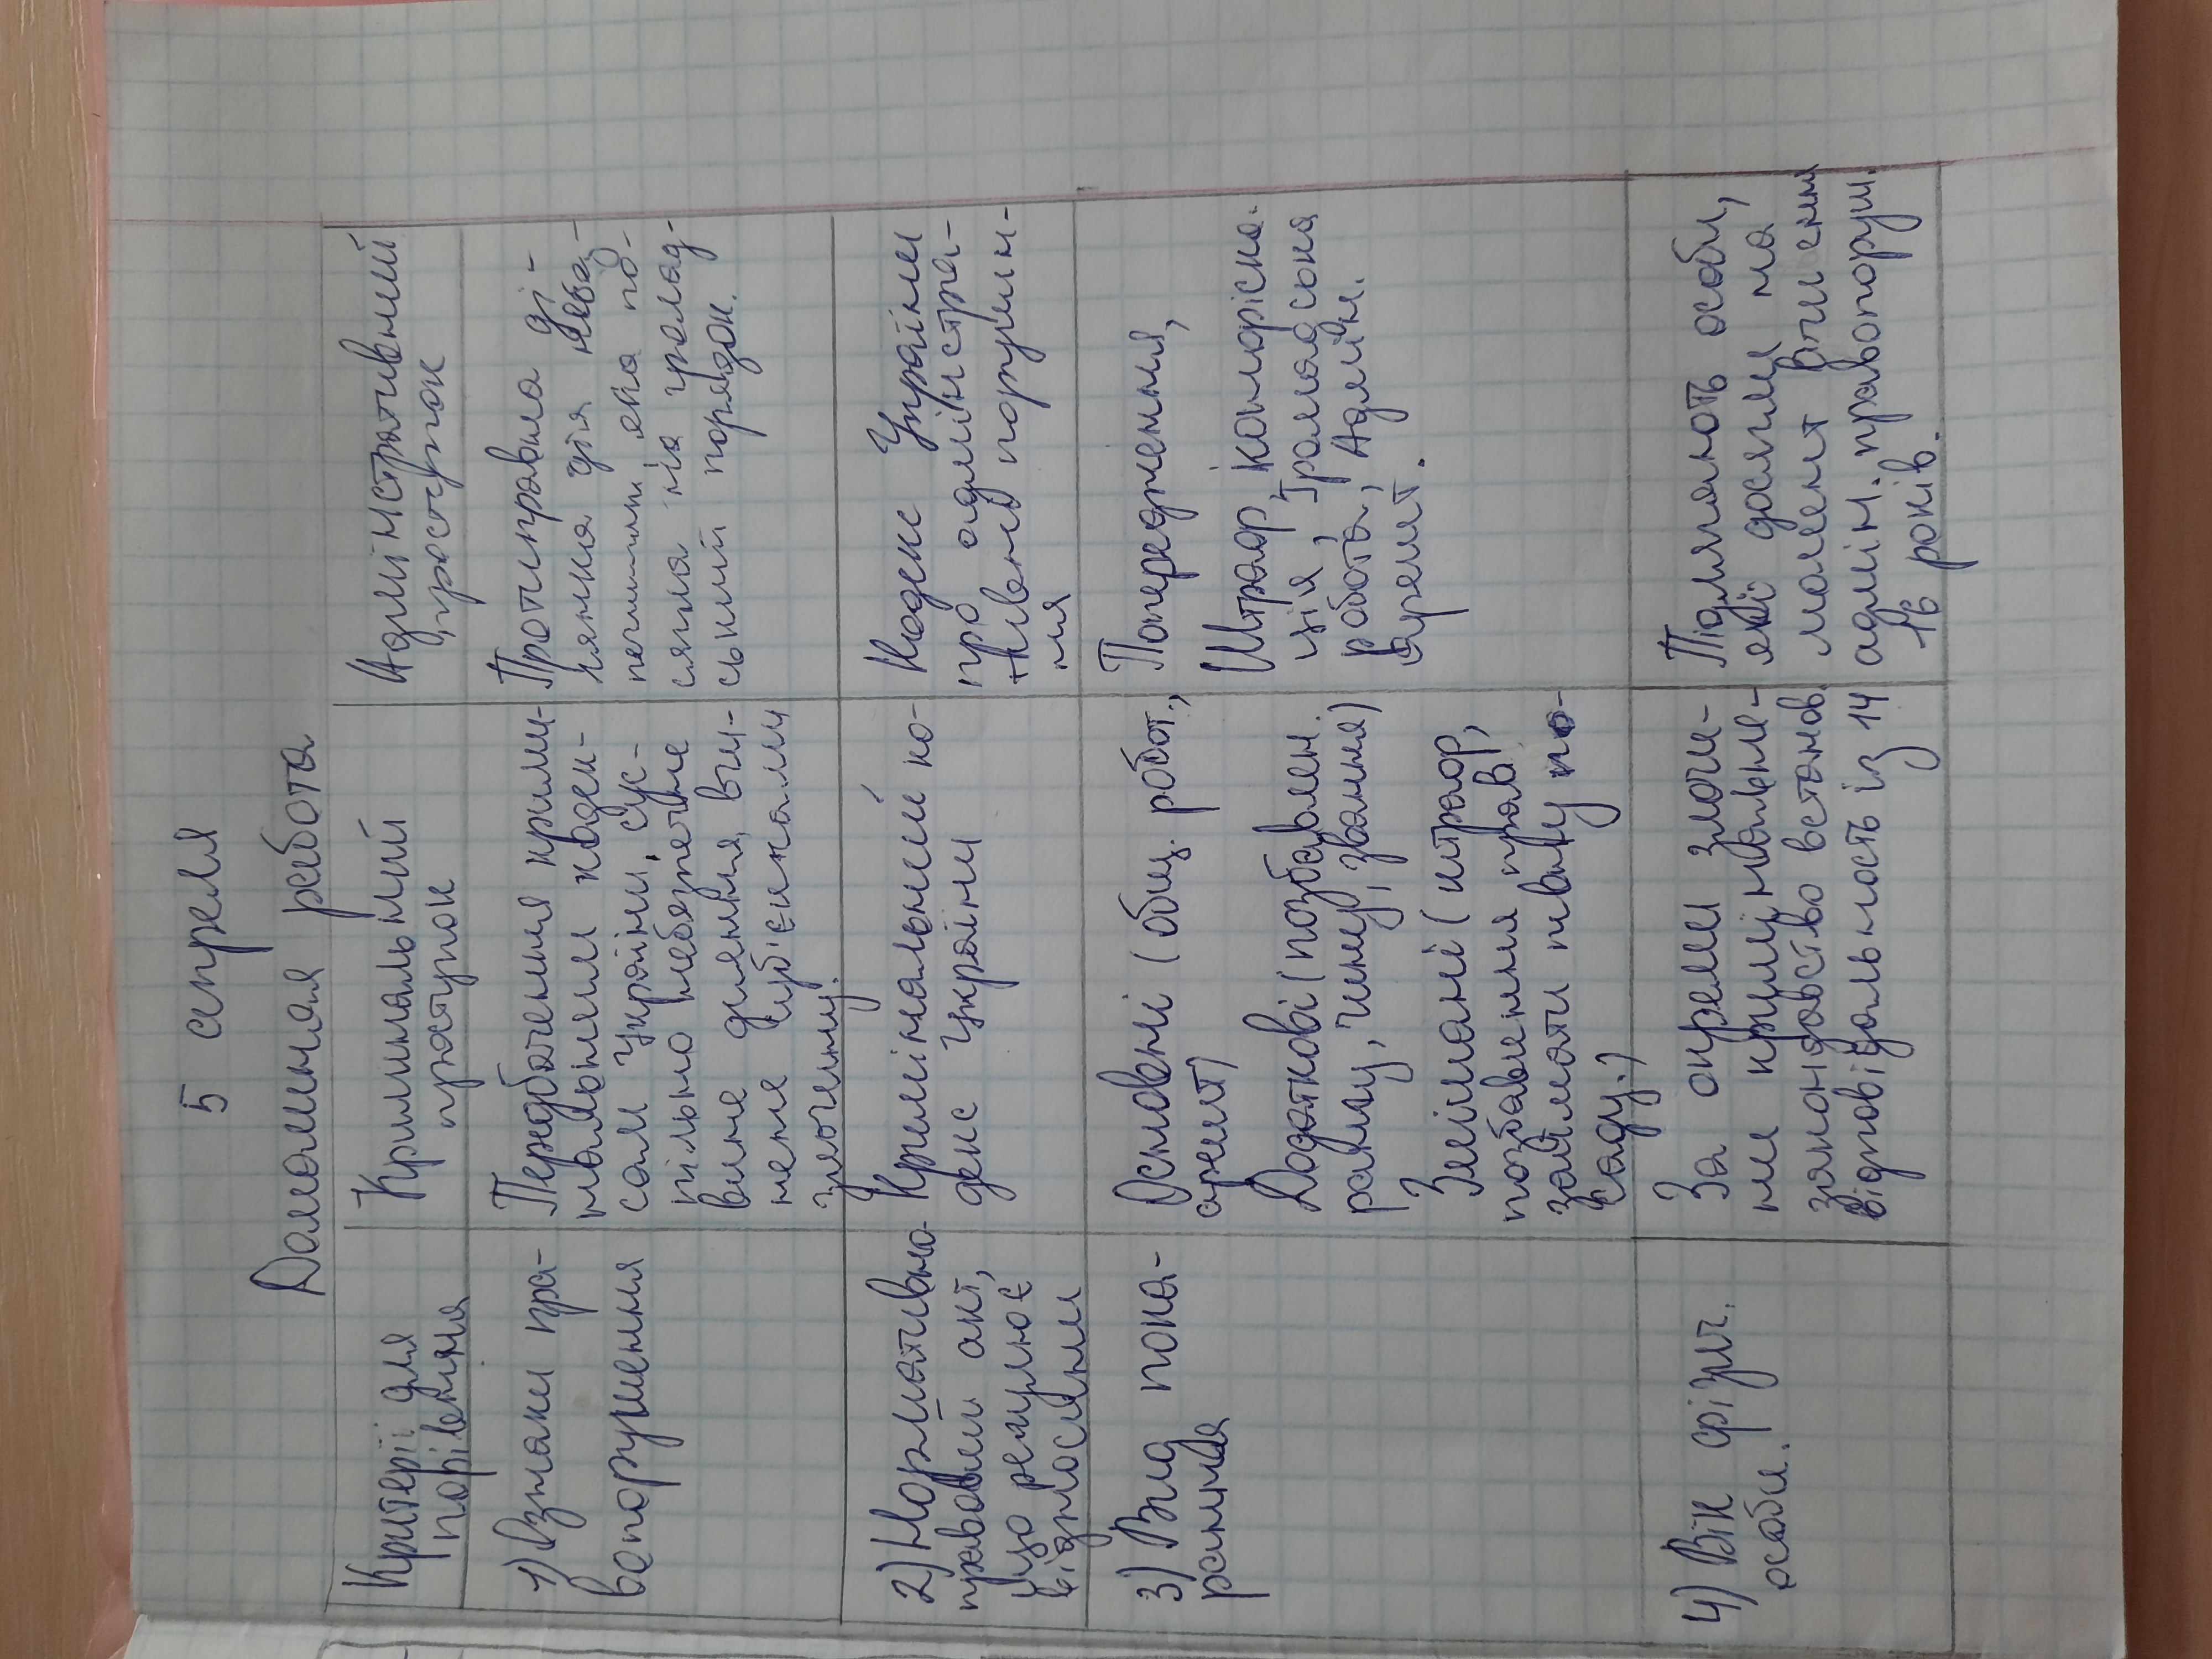 5 апреля
Домашняя работа
Критерії для
порівняння
Кримінальний
проступок
Адміністративний
проступок
1) Ознаки пра-
вопорушення
Передбачення кримі-
нальним кодек-
сом України, сус-
пільно небезпечне
винне діяння, вчи-
нене суб'єктом
злочину.
Протиправна ді-
яльна
ся на громад-
ський порядок.
2) Нормативно
правовий акт,
що регулює
відносини
Кримінальний ко-
декс України
Кодекс України
про адміністра-
тивні порушен-
ня
3) Вид пока-
рання
Основні (общ. робот.,
арешт)
Додаткові (позбавлен.
рангу, чину, звання)
Змішані (штраф,
позбавлення прав
займати певну по-
саду.)
Попередження,
Штраф, конфіска-
ція, Громадська
робота, Адмін.
арешт.
4) Вік фізич.
особи.
За окремі злочи-
ни кримінальне
законодавство встанов.
відповідальность із 14
Підлягають особи,
які досягли на
момент вчинення
адмін. правопоруш.
16 років.